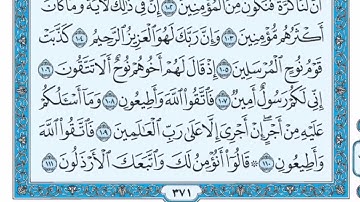 أَنَّ لَنَا كَرَّةً فَنَكُونَ مِنَ ٱلْمُؤْمِنِينَ ١٠٢ إِنَّ فِى ذَٰلِكَ لَـَٔايَةً وَمَا كَانَ
أَكْثَرُهُم مُّؤْمِنِينَ ١٠٣ وَإِنَّ رَبَّكَ لَهُوَ ٱلْعَزِيزُ ٱلرَّحِيمُ ١٠٤ كَذَّبَتْ
قَوْمُ نُوحٍ ٱلْمُرْسَلِينَ ١٠٥ إِذْ قَالَ لَهُمْ أَخُوهُمْ نُوحٌ أَلَا تَتَّقُونَ ١٠٦
إِنِّى لَكُمْ رَسُولٌ أَمِينٌ ١٠٧ فَٱتَّقُوا۟ ٱللَّهَ وَأَطِيعُونِ ١٠٨ وَمَآ أَسْـَٔلُكُمْ
عَلَيْهِ مِنْ أَجْرٍ إِنْ أَجْرِىَ إِلَّا عَلَىٰ رَبِّ ٱلْعَٰلَمِينَ ١٠٩ فَٱتَّقُوا۟ ٱللَّهَ
وَأَطِيعُونِ ١١٠ ۞ قَالُوٓا۟ أَنُؤْمِنُ لَكَ وَٱتَّبَعَكَ ٱلْأَرْذَلُونَ ١١١
٣٧١